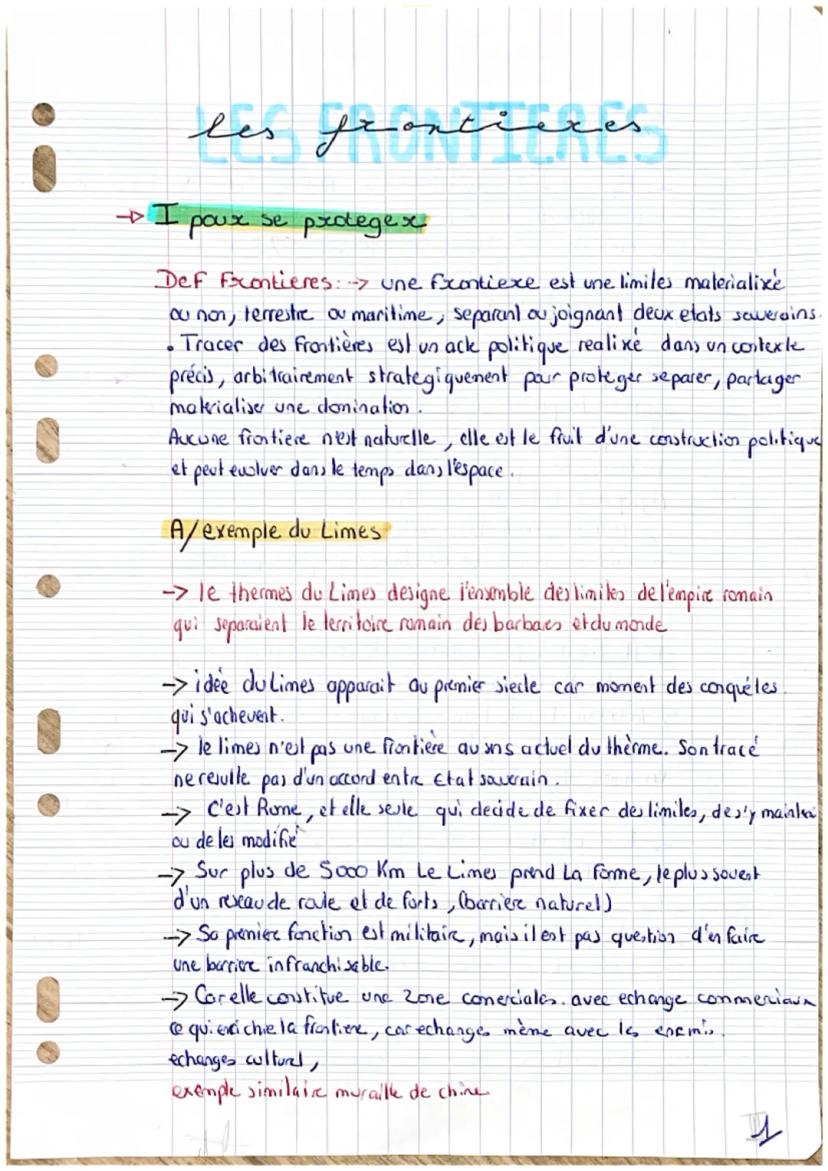 LES FRONTIERES
les frontieres
→ I pour se proteger
Def Frontieres: → une frontiere est une limites materialixé
ou non, terrestre ou maritime, separant ou joignant deux etats souverains.
• Tracer des frontières est un acte politique realixé dans un contexte
précis, arbitrairement strategiquement pour proteger separer, partager
materialiser une domination.
Aucune frontiere n'est naturelle, elle est le fruit d'une construction politique
et peut evolver dans le temps dans l'espace.
A/ exemple du Limes
→ le thermes du Limes designe l'ensemble des limites de l'empire romain
qui separaient le territoire romain des barbares et du monde
→ idée du Limes apparait au premier siecle car moment des conquêtes
qui s'achevent.
→ le limes n'est pas une frontière au sens actuel du thèrme. Son tracé
ne resulte pas d'un accord entre Etat souverain.
→ C'est Rome, et elle seule qui decide de fixer des limites, de s'y maintenir
ou de les modifié
→ Sur plus de 5000 Km Le Limes prend La forme, le plus souvent
d'un reseau de route et de forts, (barrière naturel)
→ Sa premiere fonction est militaire, mais il est pas question d'en faire
une barriere infranchisable.
→ Car elle constitue une zone comerciales. avec echange commeriaux
ce qui enrichie la frontiere, car echanges même avec les enemis.
echanges culturel,
exemple similaire muraille de chine
1